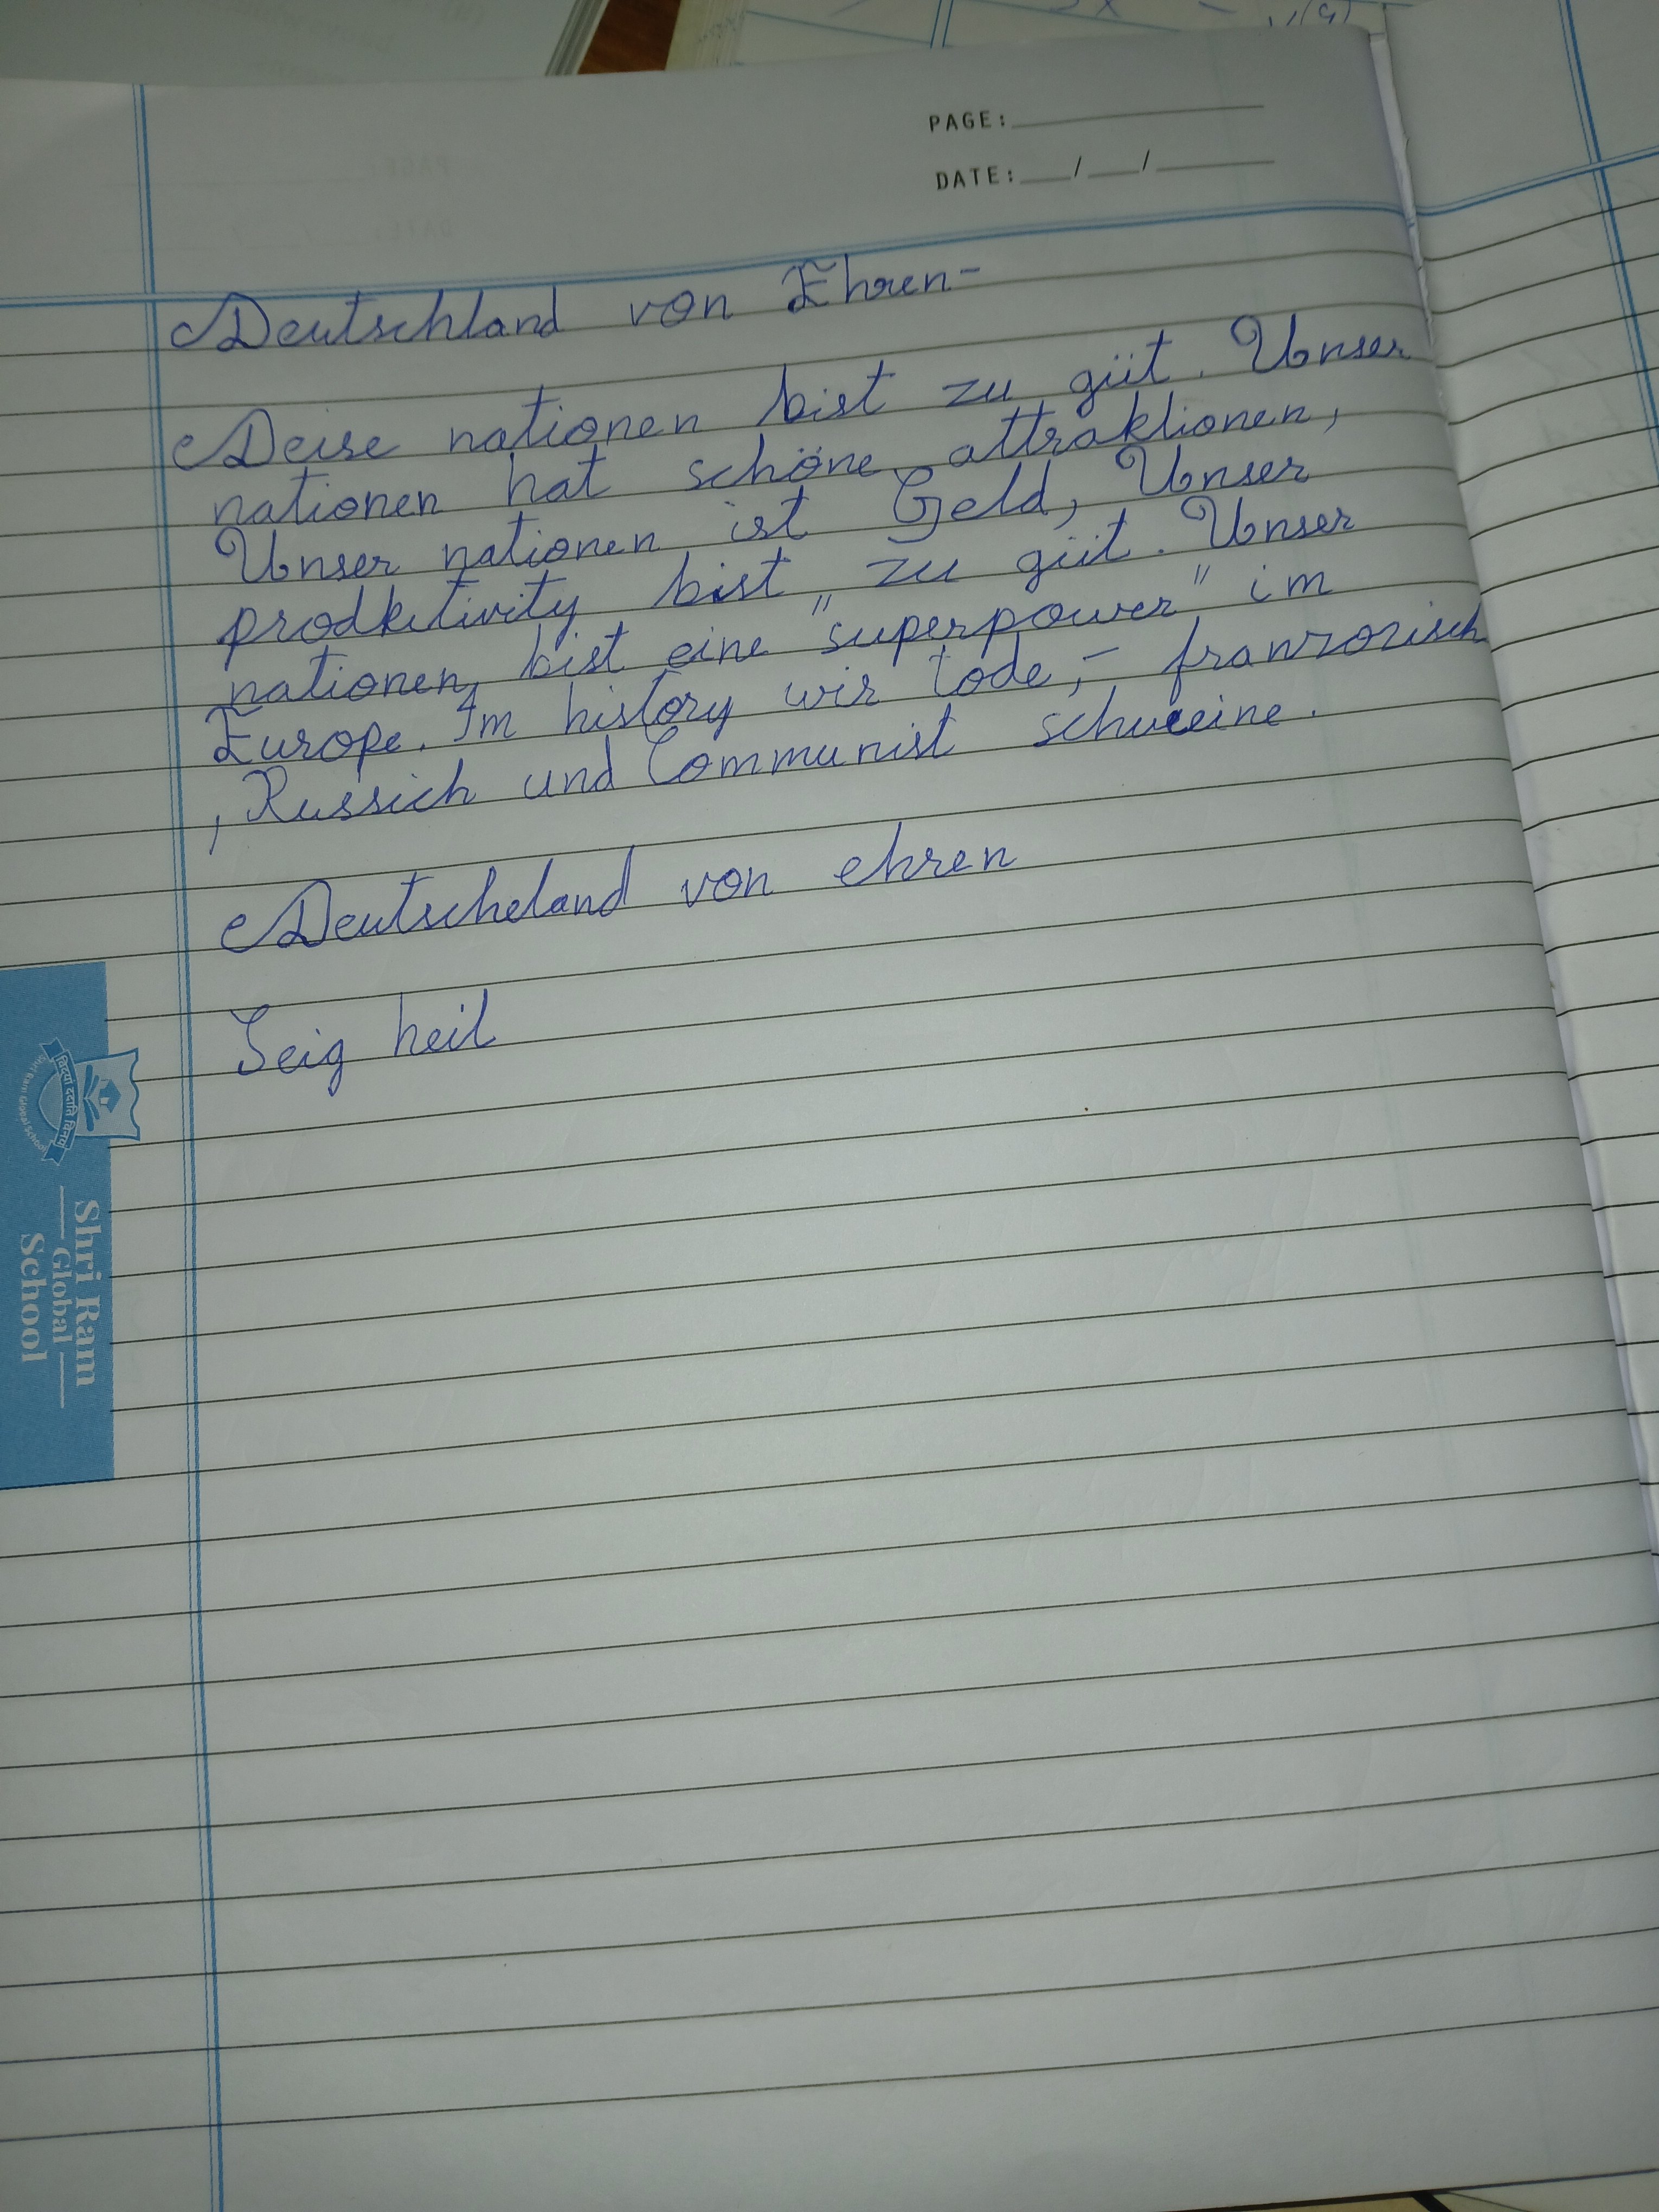 PAGE:
DATE: / /
Deutschland von Ehren-
Deise nationen bist zu güt. Unser
nationen hat schöne attraktionen,
Unser nationen ist Geld, Unser
prodktivity bist zu güt. Unser
nationen bist eine "superpower" im
Europe. Im history wir tode, - franzozisch
, Russich und Communist schweine.
Deutscheland von ehren
Seig heil
Shri Ram
Global
School